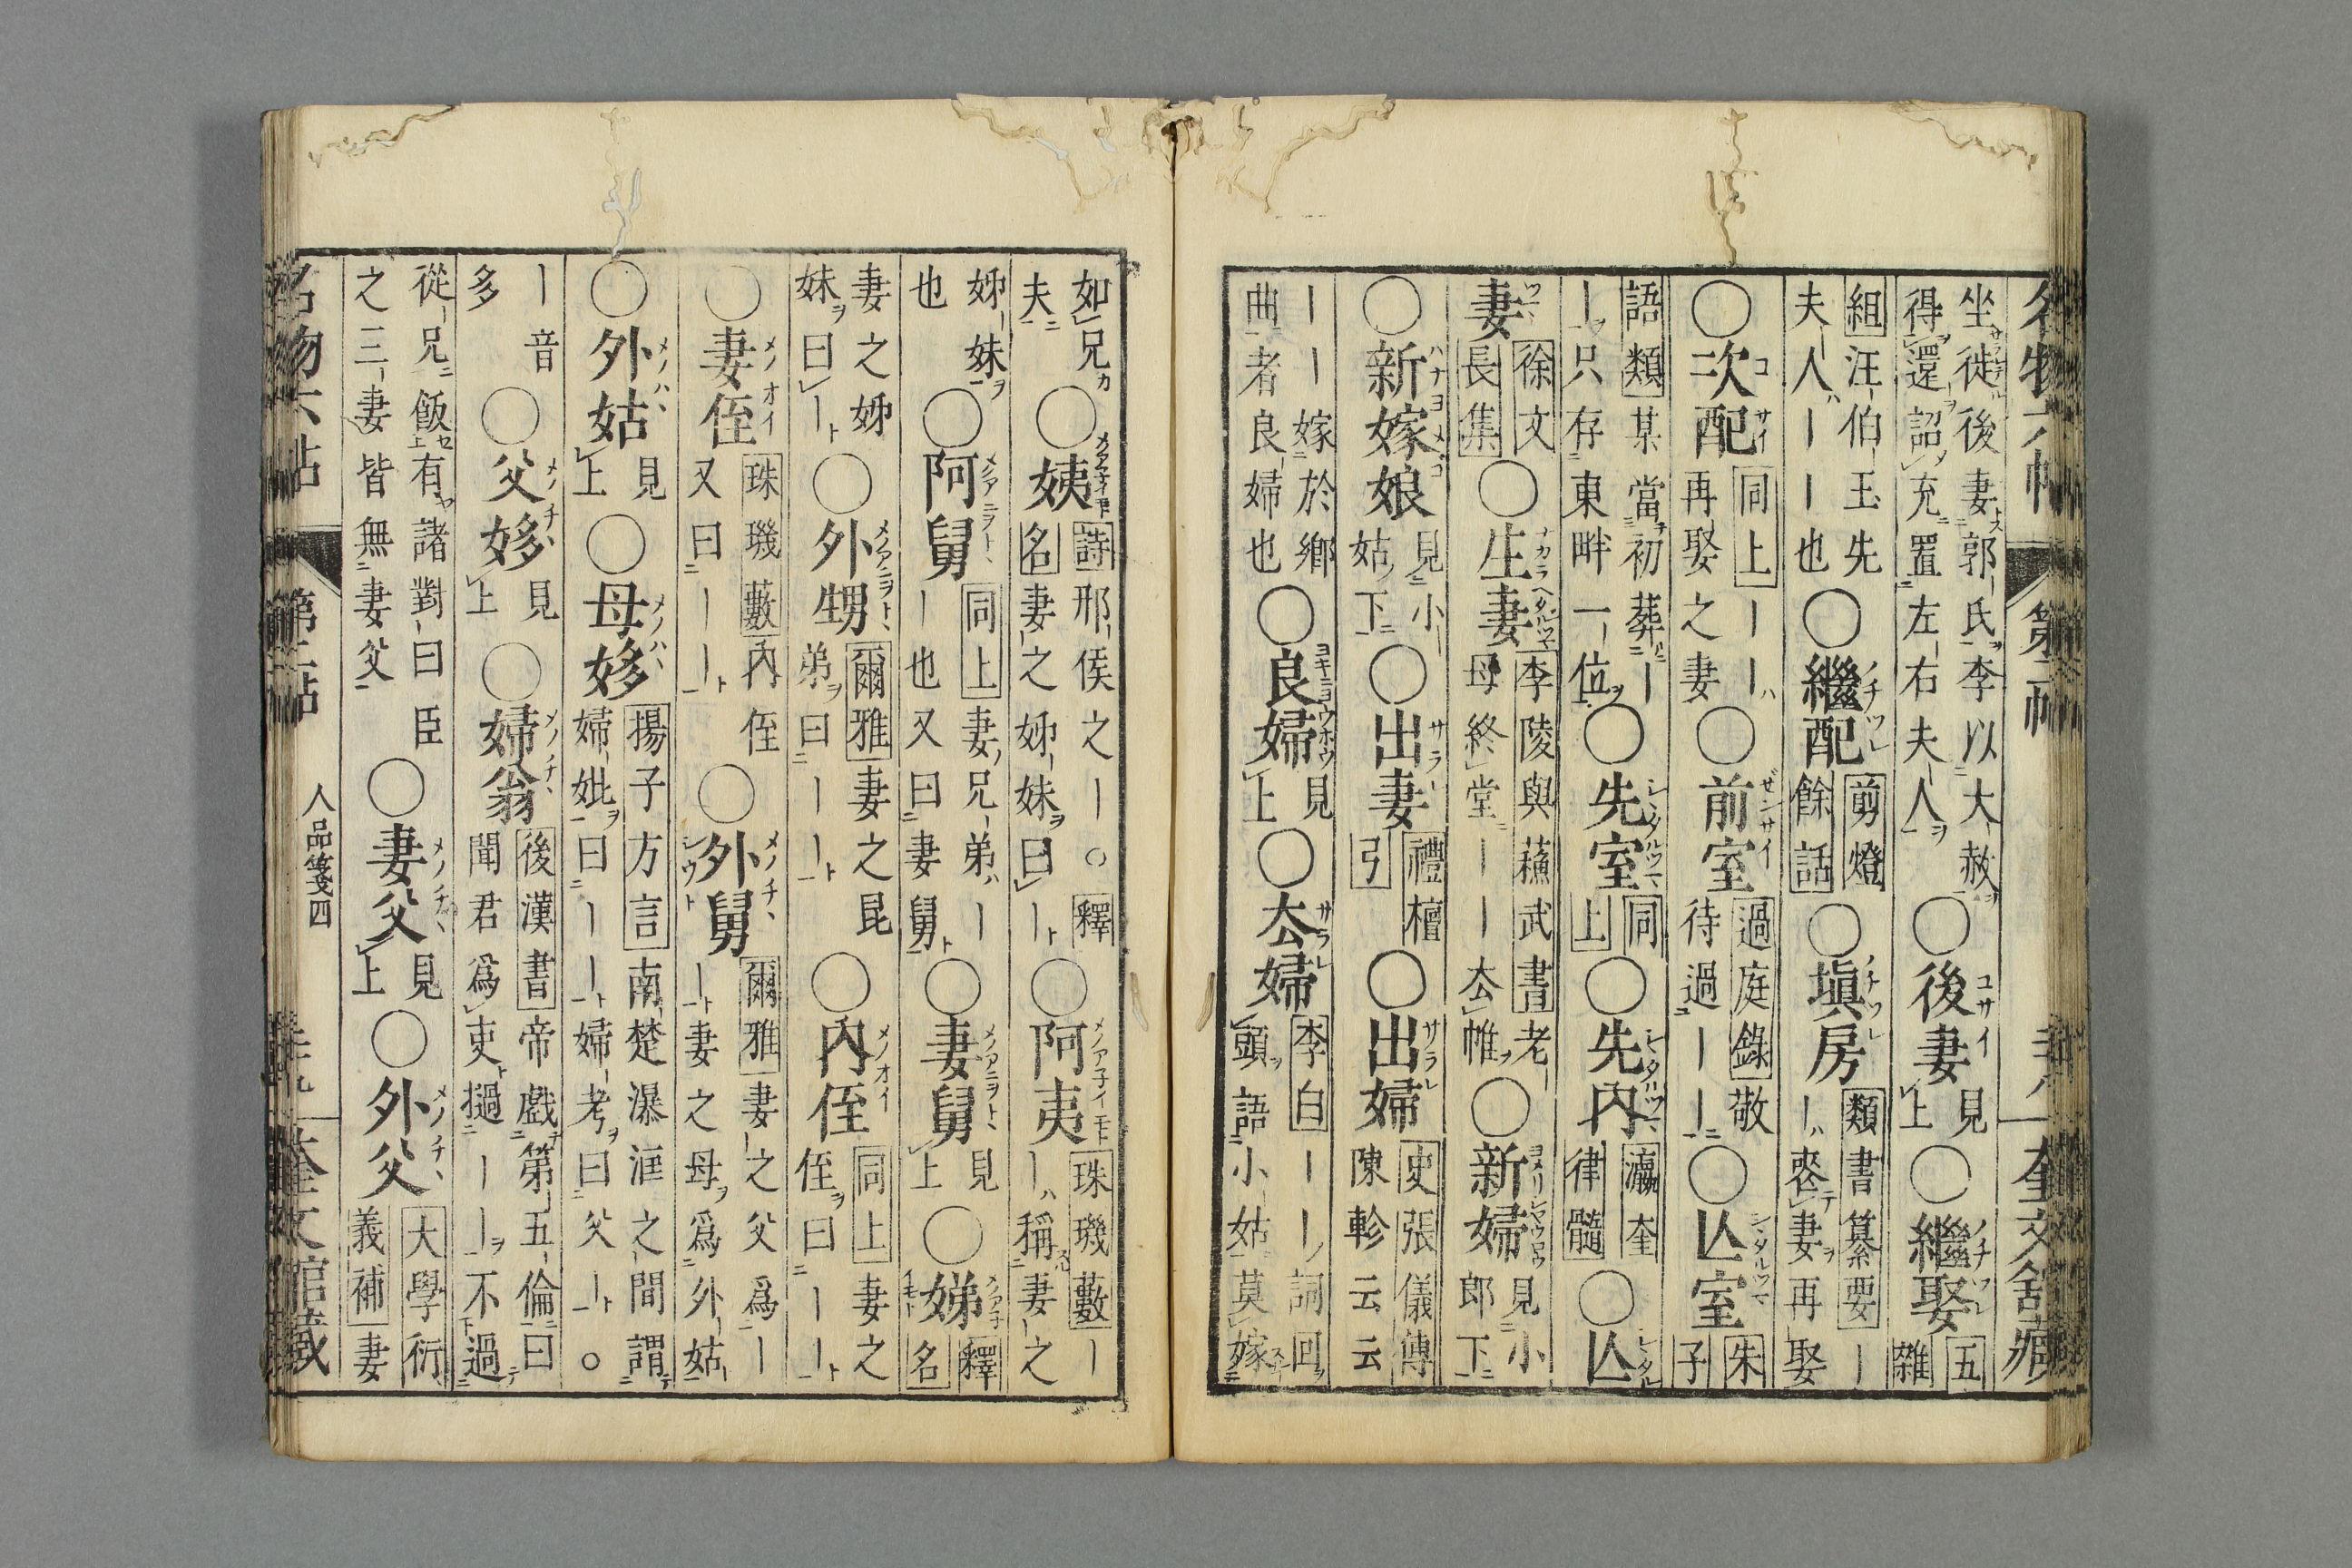 名物六帖 第二帖 奎文舘藏
坐徙後妻郭氏李以大赦
得還詔充置左右夫人 ○後妻 見上 ○繼娶 五雜
組 汪伯玉先
夫人｜｜也 ○繼配 剪燈餘話 ○塡房 類書纂要 ｜｜喪妻再娶
○次配 同上 ｜｜再娶之妻 ○前室 過庭錄 敬待過｜｜ ○亾室 朱子
語類 某當初葬｜
｜只存東畔一位 ○先室 同上 ○先内 瀛奎律髓 ○亾
妻 徐文長集 ○生妻 李陵與蘓武書 老母終堂｜｜去帷 ○新婦 見小郎下
○新嫁娘 見小姑下 ○出妻 禮檀弓 ○出婦 史張儀傳 陳軫云云
｜｜嫁於鄉
曲者良婦也 ○良婦 見上 ○去婦 李白｜｜詞 回頭語小姑莫嫁
如兄
夫 ○姨 詩 邢侯之｜○釋名 妻之姊妹曰｜ ○阿夷 珠璣藪 ｜｜稱妻之
姊妹
也 ○阿舅 同上 妻兄弟｜｜也又曰妻舅 ○妻舅 見上 ○娣 釋名
妻之姊
妹曰｜ ○外甥 爾雅 妻之昆弟曰｜｜ ○内侄 同上 妻之侄曰｜｜
○妻侄 珠璣藪 内侄又曰｜｜ ○外舅 爾雅 妻之父爲｜｜妻之母爲外姑
○外姑 見上 ○母姼 揚子方言 南楚瀑洭之間謂婦妣曰｜｜婦考曰父｜○
｜音
多 ○父姼 見上 ○婦翁 後漢書 帝戲第五倫曰聞君爲吏撾｜｜不過
從兄飯有諸對曰臣
之三妻皆無妻父 ○妻父 見上 ○外父 大學衍義補 妻
名物六帖 第二帖 人品箋四 奎文舘藏